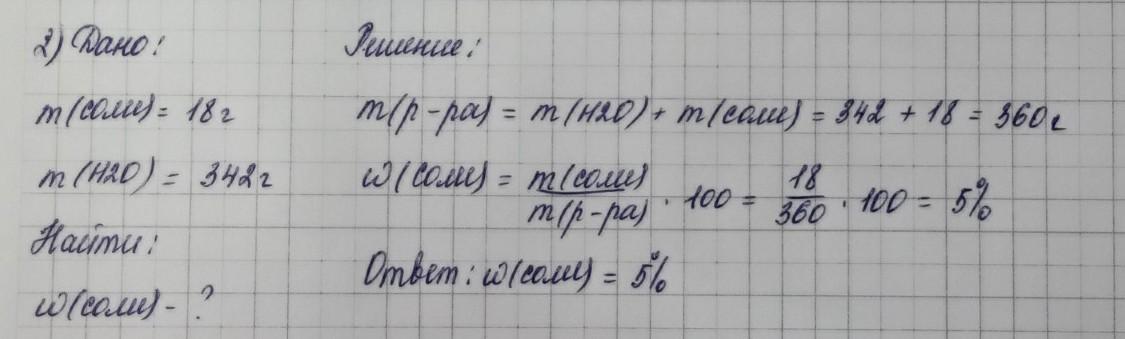 2) Дано: Решение:
m(соли) = 18г m(р-ра) = m(H2O) + m(соли) = 342 + 18 = 360г
m(H2O) = 342г ω(соли) = m(соли) / m(р-ра) · 100 = 18 / 360 · 100 = 5%
Найти:
Ответ: ω(соли) = 5%
ω(соли) - ?